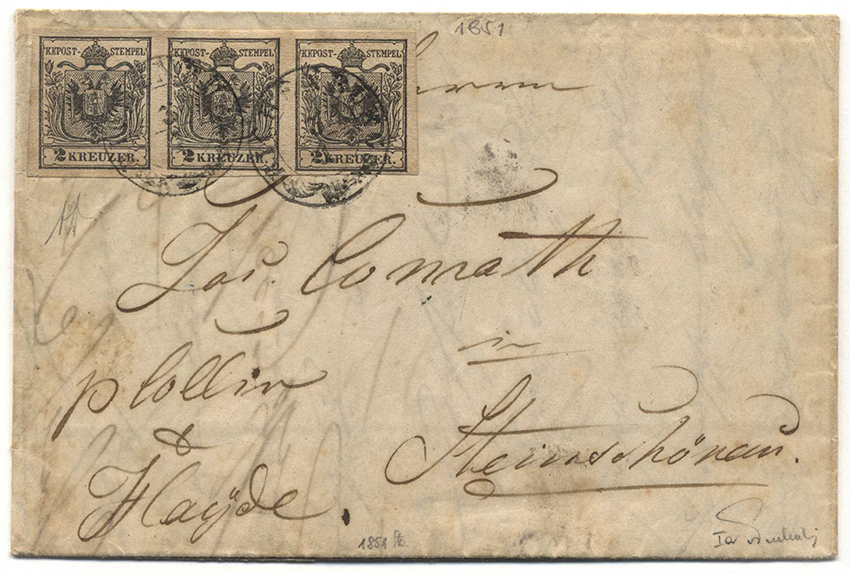 1851
KKPOST-STEMPEL KKPOST-STEMPEL KKPOST-STEMPEL
2 KREUZER. 2 KREUZER. 2 KREUZER.
Herrn
Jos. Conrath
in
p Collin
&
Steinschönau.
Hayde.
1851